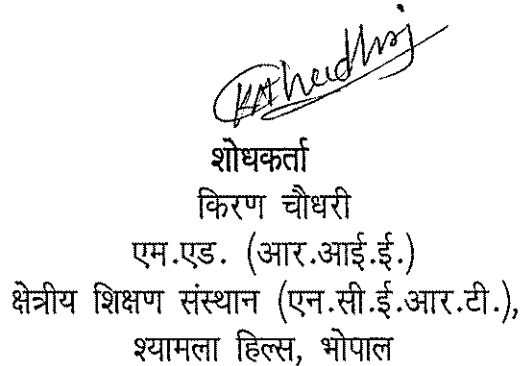 शोधकर्ता
किरण चौधरी
एम.एड. (आर.आई.ई.)
क्षेत्रीय शिक्षण संस्थान (एन.सी.ई.आर.टी.),
श्यामला हिल्स, भोपाल